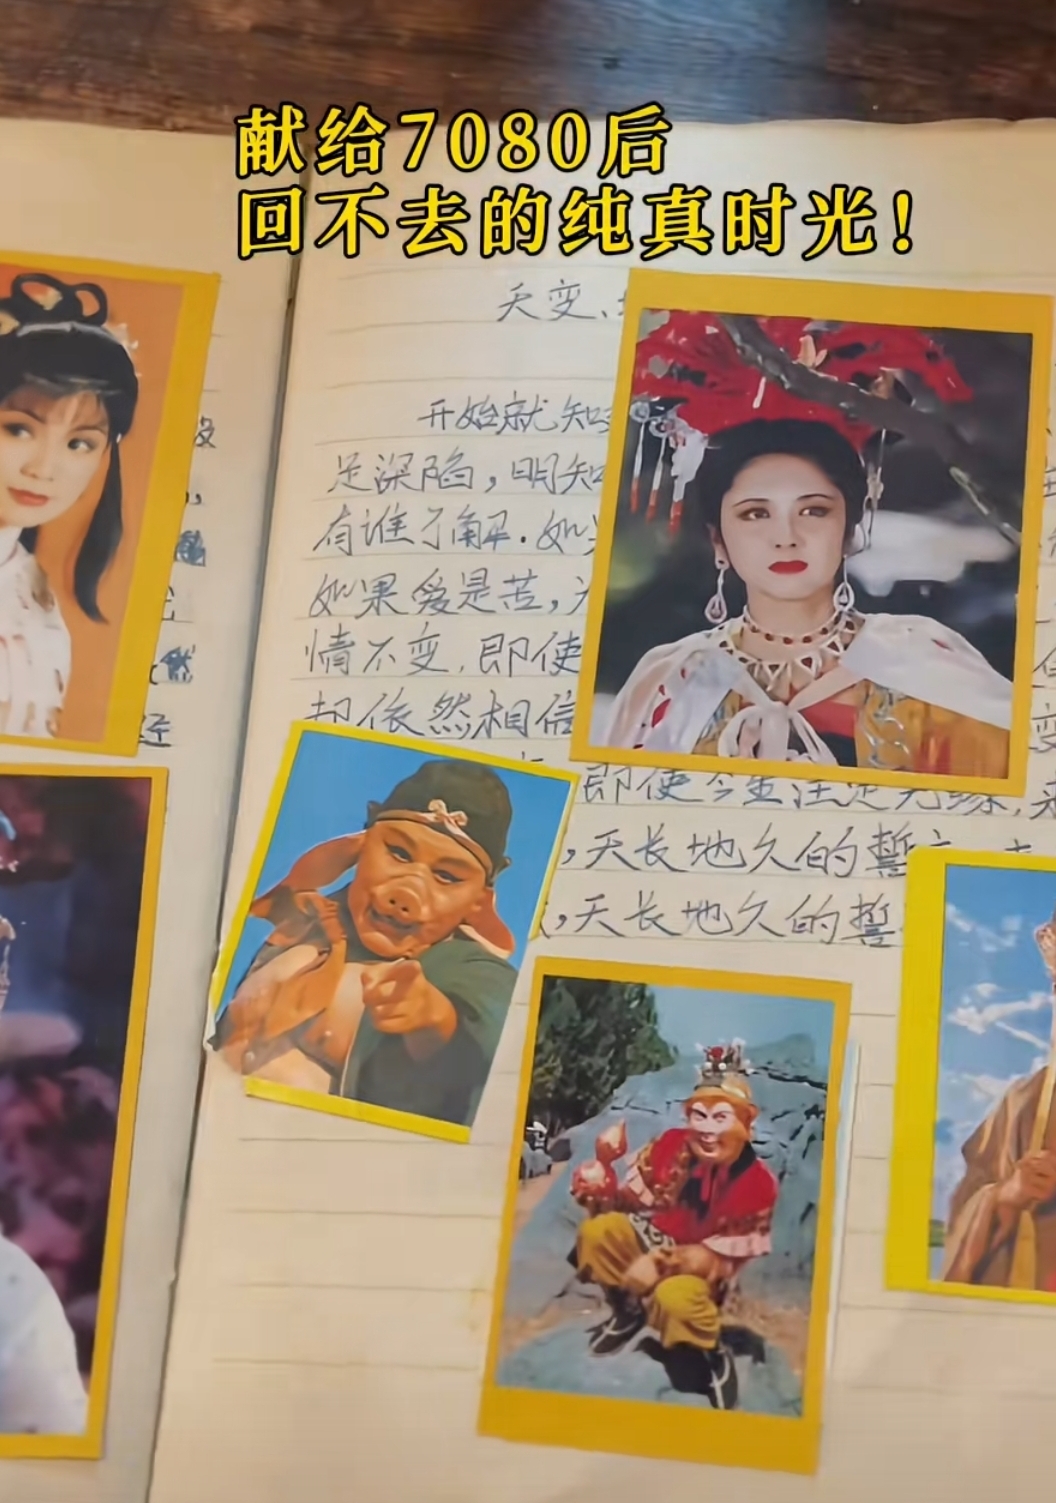 献给7080后
回不去的纯真时光！
天变、
开始就知
足深陷，明知
有谁了解．如
如果爱是苦，
情不变，即使
却依然相信
即使今生注定无缘，
，天长地久的誓
，天长地久的誓